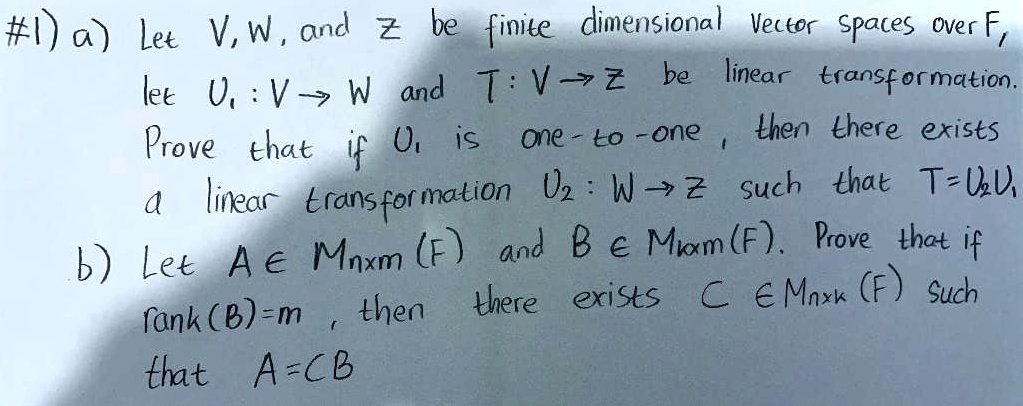 #1) a) Let V, W, and Z be finite dimensional vector spaces over F,
let U₁ : V → W and T : V → Z be linear transformation.
Prove that if U₁ is one-to-one, then there exists
a linear transformation U₂ : W → Z such that T=U₂U₁
b) Let A ∈ Mnxm (F) and B ∈ Mkxm (F). Prove that if
rank(B)=m, then there exists C ∈ Mnxk (F) such
that A=CB